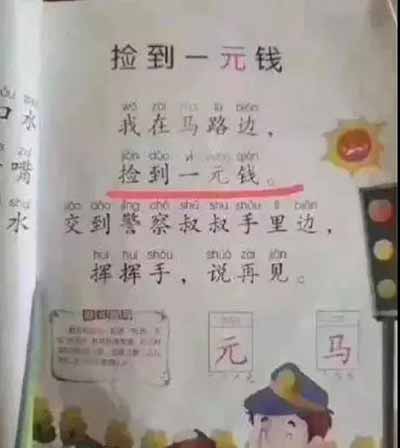 捡到一元钱
wǒ zài mǎ lù biān
我在马路边，
jiǎn dào yì yuán qián
捡到一元钱。
jiāo dào jǐng chá shū shu shǒu lǐ biān
交到警察叔叔手里边，
huī huī shǒu shuō zài jiàn
挥挥手，说再见。
口水
嘴
水
元
马